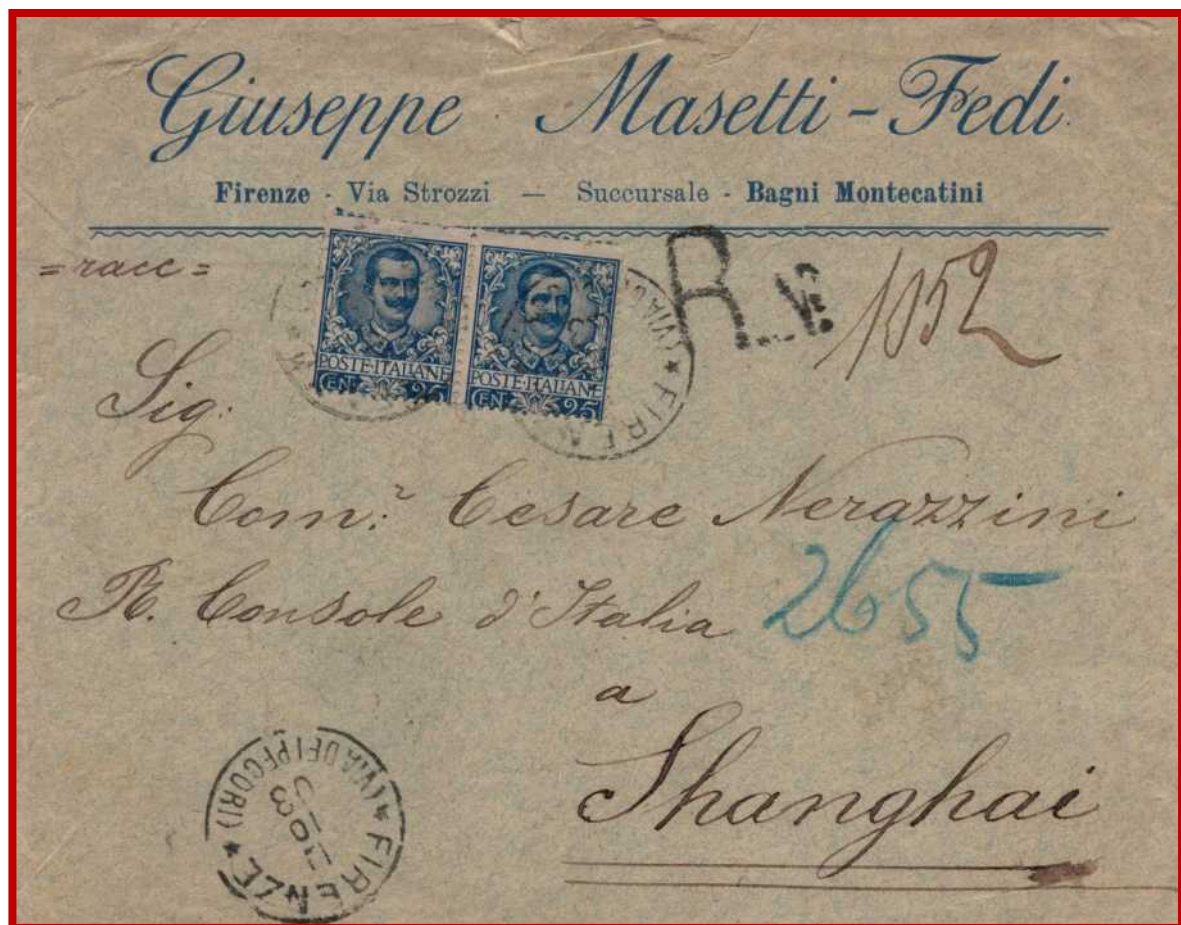 Giuseppe Masetti - Fedi
Firenze - Via Strozzi — Succursale - Bagni Montecatini
= racc =
R. N.
1052
POSTE·ITALIANE
CEN. 25
POSTE·ITALIANE
CEN. 25
FIREN
Sig:
Com.r Cesare Nerazzini
R. Console d'Italia
2655
a
Shanghai
FIRENZE
(VIA DEI PECORI)